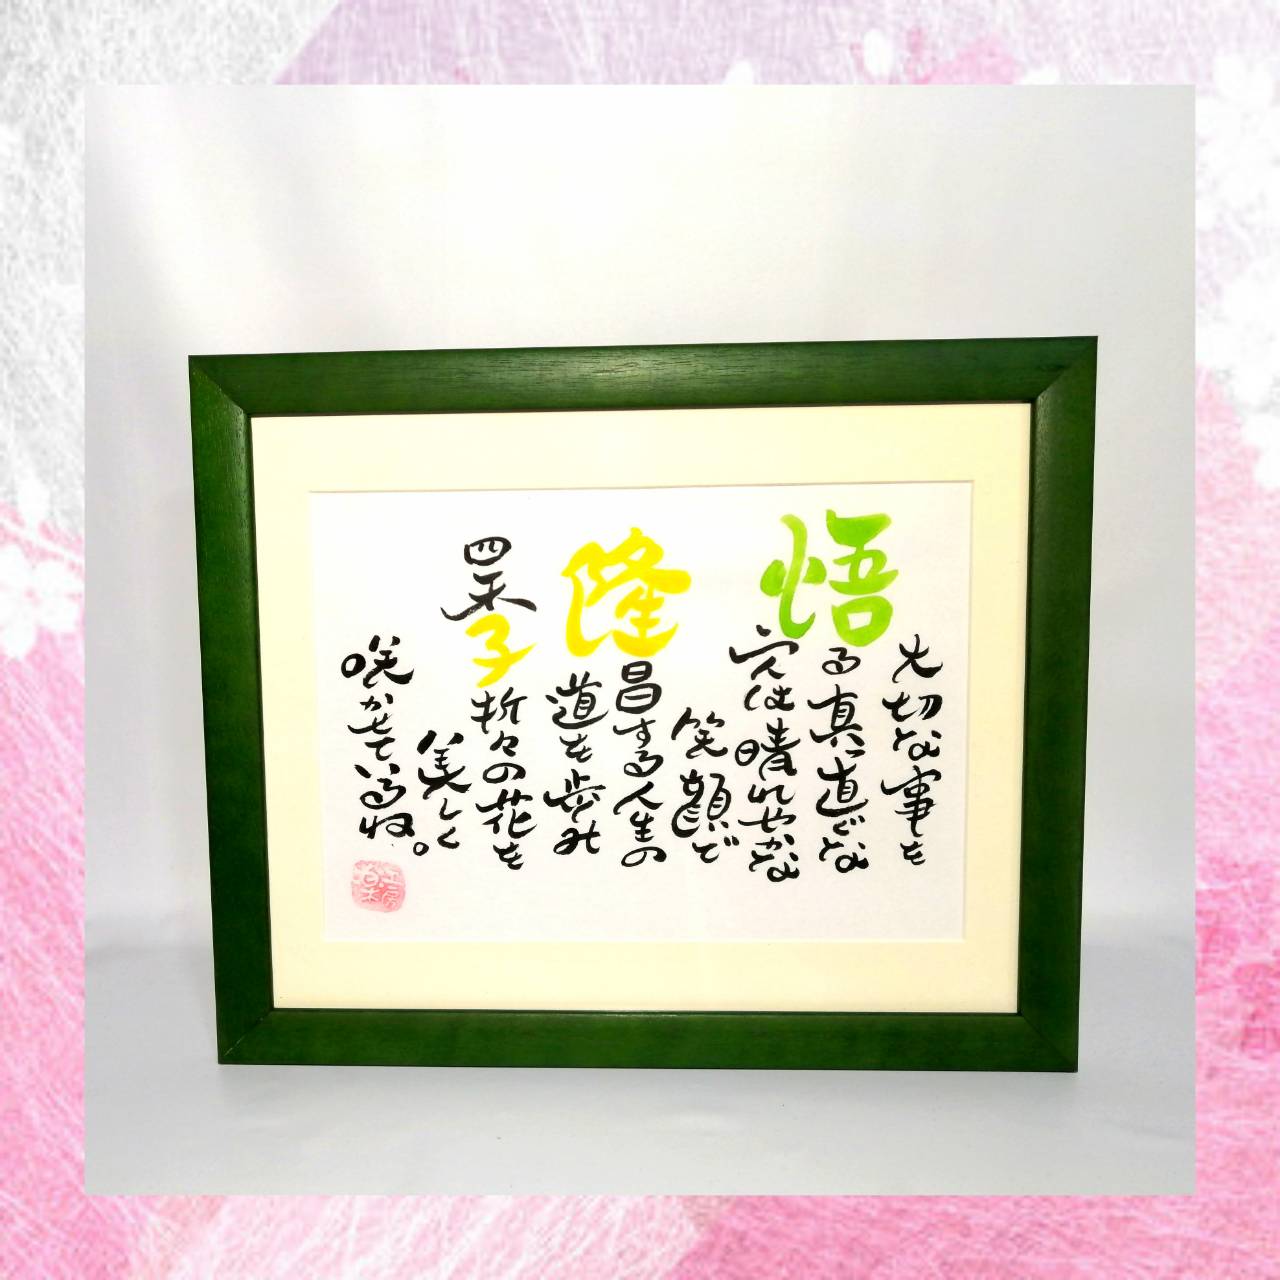 大切な事を
悟る真っ直ぐな
心は晴れやかな
笑顔で
隆昌する人生の
道を歩み
四季折々の花を
美しく
咲かせているね。
工房楽